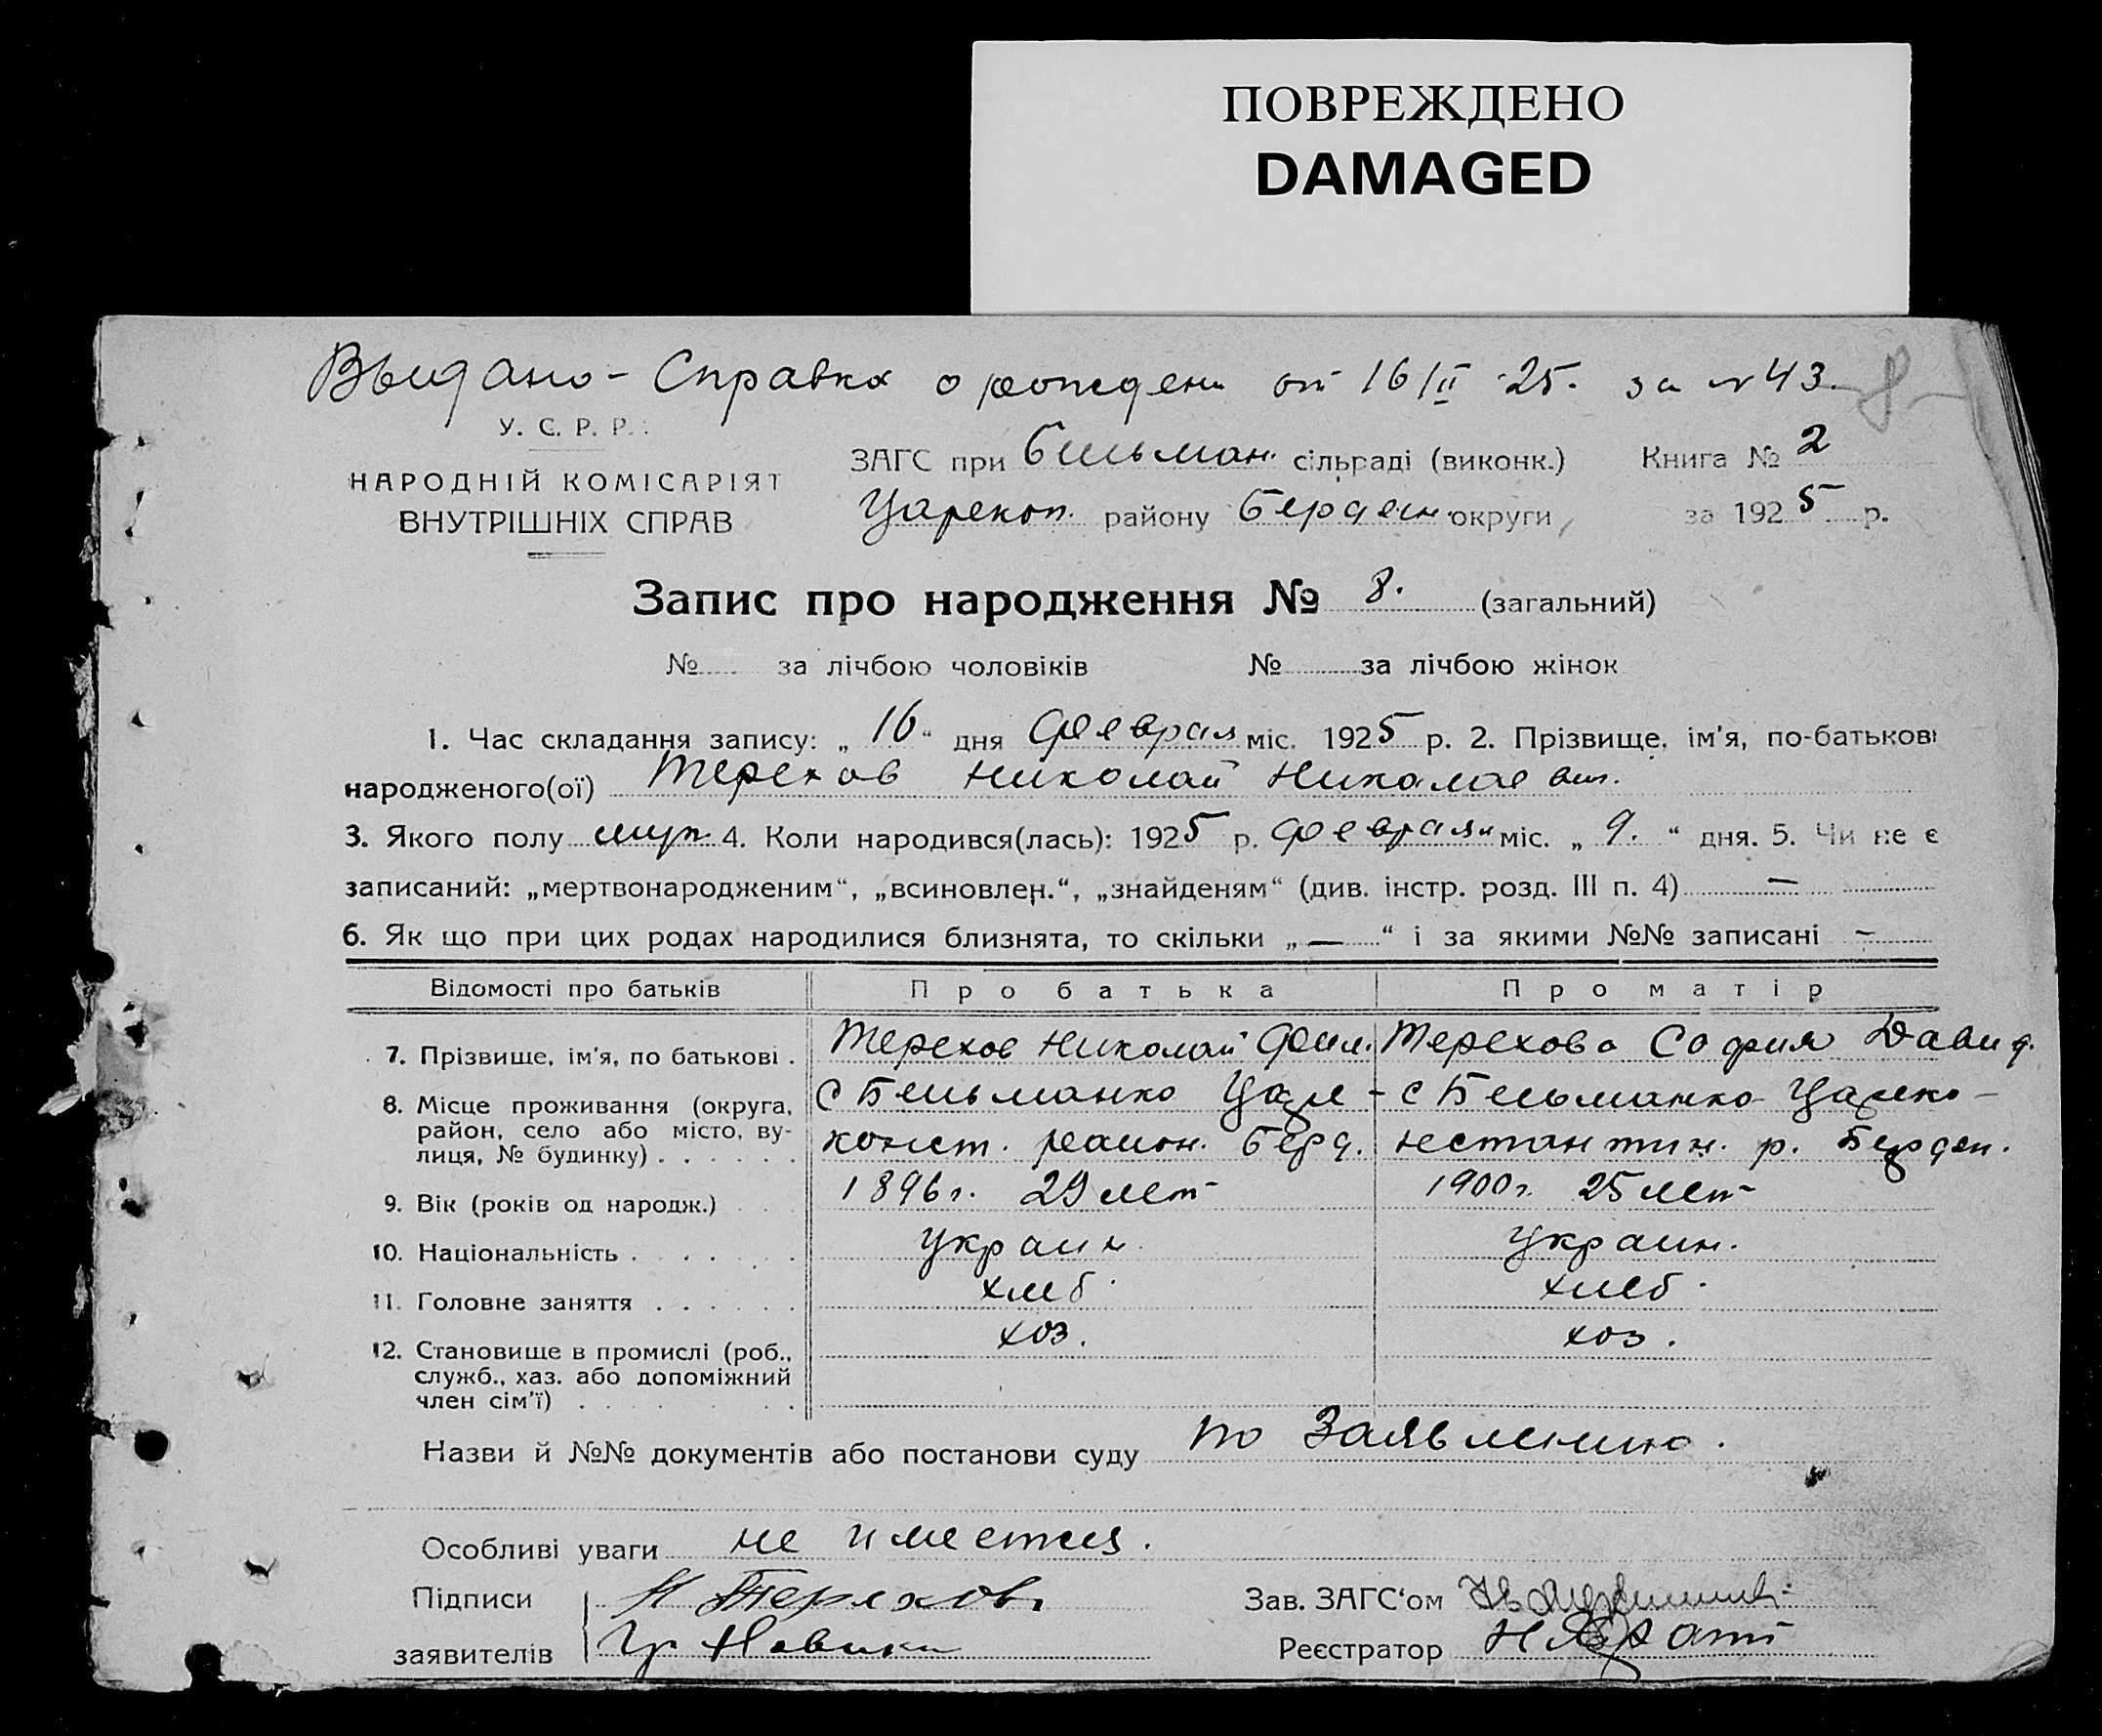 ПОВРЕЖДЕНО
DAMAGED
Выдано - Справка о рожден от 16/II 25. за № 43.
8
У. С. Р. Р.
НАРОДНІЙ КОМІСАРІЯТ
ВНУТРІШНІХ СПРАВ
ЗАГС при Бильман. сільраді (виконк.) Книга № 2
Царекон. району Бердян. округи, за 1925 р.
Запис про народження № 8. (загальний)
№ за лічбою чоловіків № за лічбою жінок
1. Час складання запису: „16“ дня Февраля міс. 1925 р. 2. Прізвище, ім'я, по-батькові
народженого(ої) Терехов Николай Николаевич.
3. Якого полу муж. 4. Коли народився(лась): 1925 р. Февраля міс. „9.“ дня. 5. Чи не є
записаний: „мертвонародженим“, „всиновлен.“, „знайденям“ (див. інстр. розд. III п. 4) —
6. Як що при цих родах народилися близнята, то скільки „—“ і за якими №№ записані -
Відомості про батьків Про батька Про матір
7. Прізвище, ім'я, по батькові . Терехов Николай Фил. Терехова София Давид.
8. Місце проживання (округа, район, село або місто, вулиця, № будинку) . . . . . . с Бельманко Царе- с Бельманко Царико-
конст. район. Берд. нстантин. р. Бердян.
9. Вік (років од народж.) 1896 г. 29 лет 1900 г. 25 лет
10. Національність . . . . . . Украин Украин.
11. Головне заняття . . . . . . хлеб. хлеб.
12. Становище в промислі (роб., служб., хаз. або допоміжний член сім'ї) хоз. хоз.
Назви й №№ документів або постанови суду по Заявлению.
Особливі уваги не имеется.
Підписи Н Терехов Зав. ЗАГС'ом
заявителів Гр Новики Реєстратор